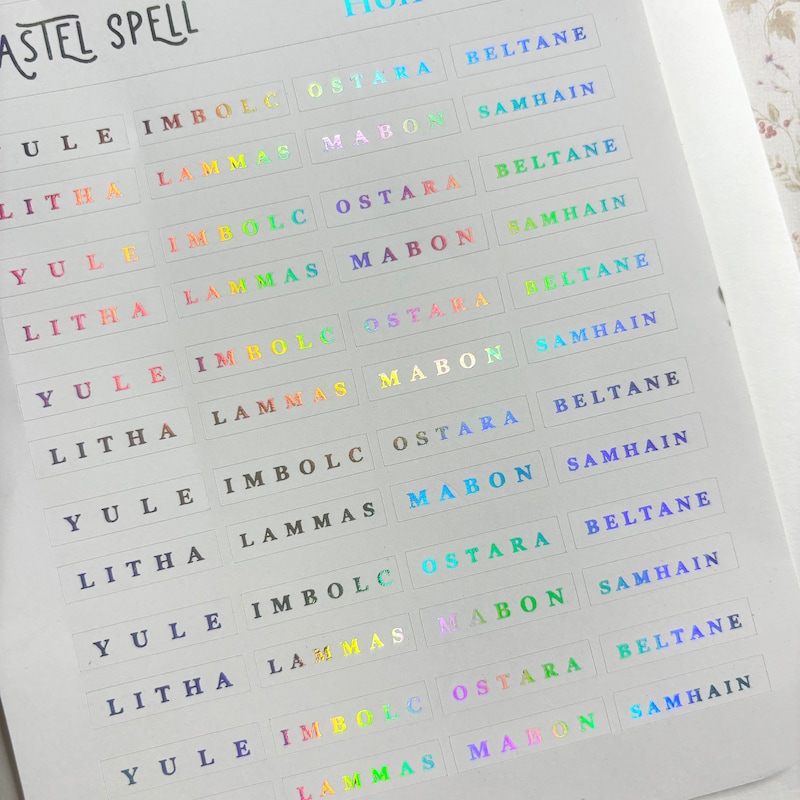 ASTEL SPELL
ULE IMBOLC OSTARA BELTANE
LITHA LAMMAS MABON SAMHAIN
YULE IMBOLC OSTARA BELTANE
LITHA LAMMAS MABON SAMHAIN
YULE IMBOLC OSTARA BELTANE
LITHA LAMMAS MABON SAMHAIN
YULE IMBOLC OSTARA BELTANE
LITHA LAMMAS MABON SAMHAIN
YULE IMBOLC OSTARA BELTANE
LITHA LAMMAS MABON SAMHAIN
YULE IMBOLC OSTARA BELTANE
LAMMAS MABON SAMHAIN